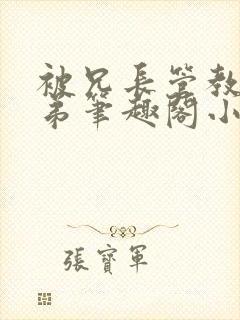 被兄長管教
弟筆趣閣小
張寶軍